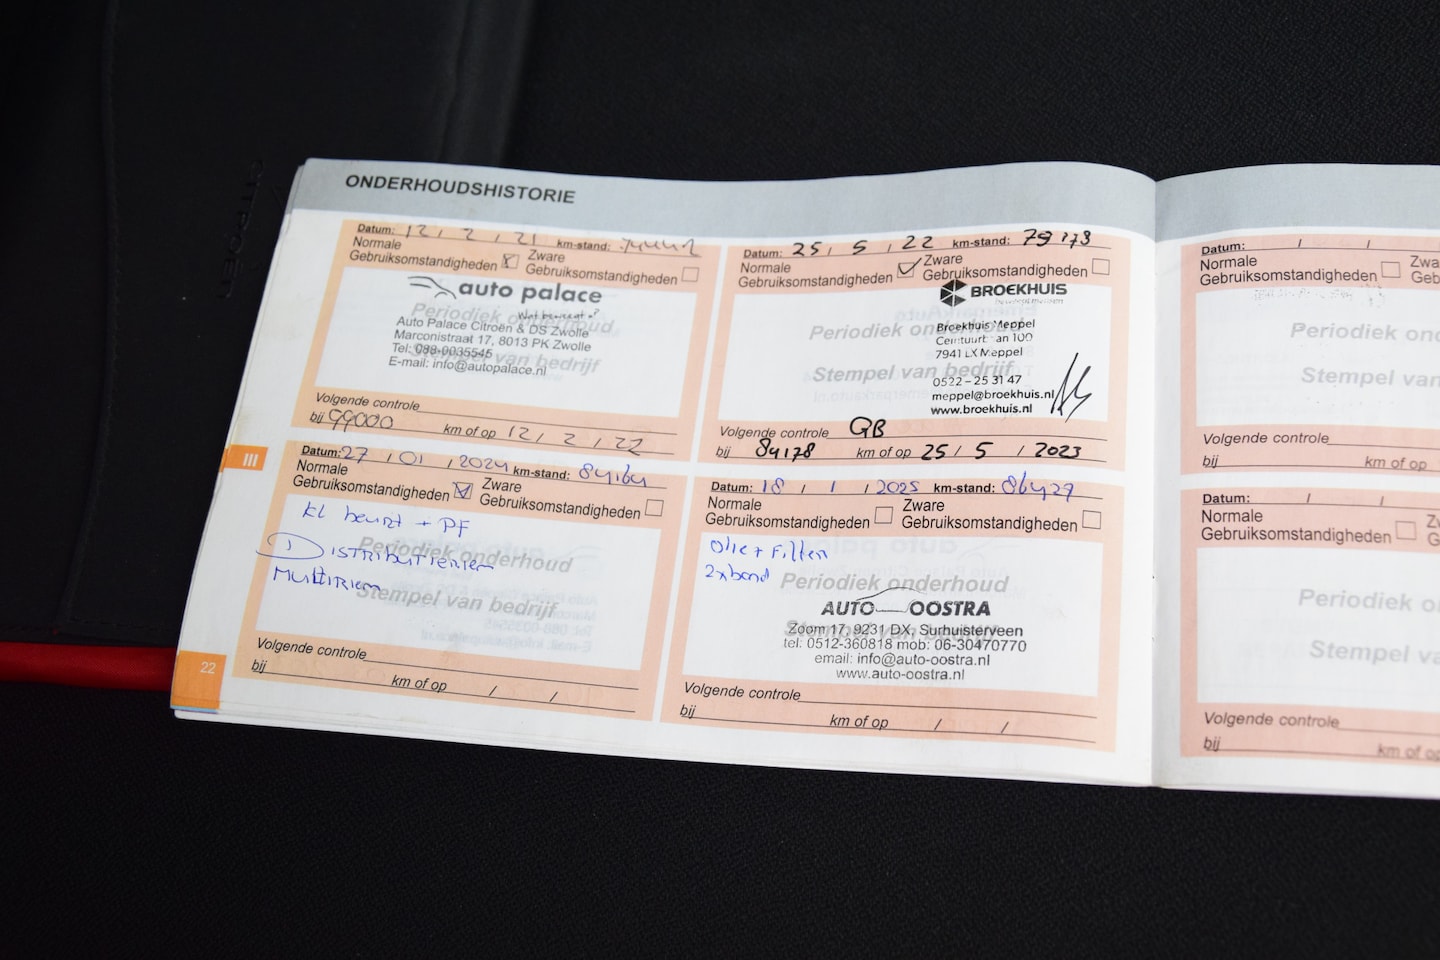 ONDERHOUDSHISTORIE
Datum: 12 / 2 / 21 km-stand:
Normale Gebruiksomstandigheden
Zware Gebruiksomstandigheden
auto palace
Periodiek onderhoud
Auto Palace Citroën & DS Zwolle
Marconistraat 17, 8013 PK Zwolle
Tel: 088-0035545
Stempel van bedrijf
E-mail: info@autopalace.nl
Volgende controle
bij 99000 km of op 12 / 2 / 22
Datum: 25 / 5 / 22 km-stand: 79173
Normale Gebruiksomstandigheden
Zware Gebruiksomstandigheden
BROEKHUIS
Periodiek onderhoud
Broekhuis Meppel
an 100
7941 LX Meppel
Stempel van bedrijf
0522 – 25 31 47
meppel@broekhuis.nl
www.broekhuis.nl
Volgende controle GB
bij 84178 km of op 25 / 5 / 2023
III
Datum: 27 / 01 / 2024 km-stand: 84164
Normale Gebruiksomstandigheden
Zware Gebruiksomstandigheden
KL beurt + PF
Periodiek onderhoud
DISTRIBUTIERIEM
MULTIRIEM
Stempel van bedrijf
Volgende controle
bij km of op / /
22
Datum: 18 / 1 / 2025 km-stand: 86427
Normale Gebruiksomstandigheden
Zware Gebruiksomstandigheden
Olie + Filter
2x band
Periodiek onderhoud
AUTO OOSTRA
Zoom 17, 9231 DX, Surhuisterveen
tel: 0512-360818 mob: 06-30470770
email: info@auto-oostra.nl
www.auto-oostra.nl
Volgende controle
bij km of op / /
Datum: / /
Normale
Gebruiksomstandigheden
Periodiek
Stempel
Volgende controle
bij km of op
Datum: / /
Normale
Gebruiksomstandigheden
Periodiek
Stempel
Volgende controle
bij km of